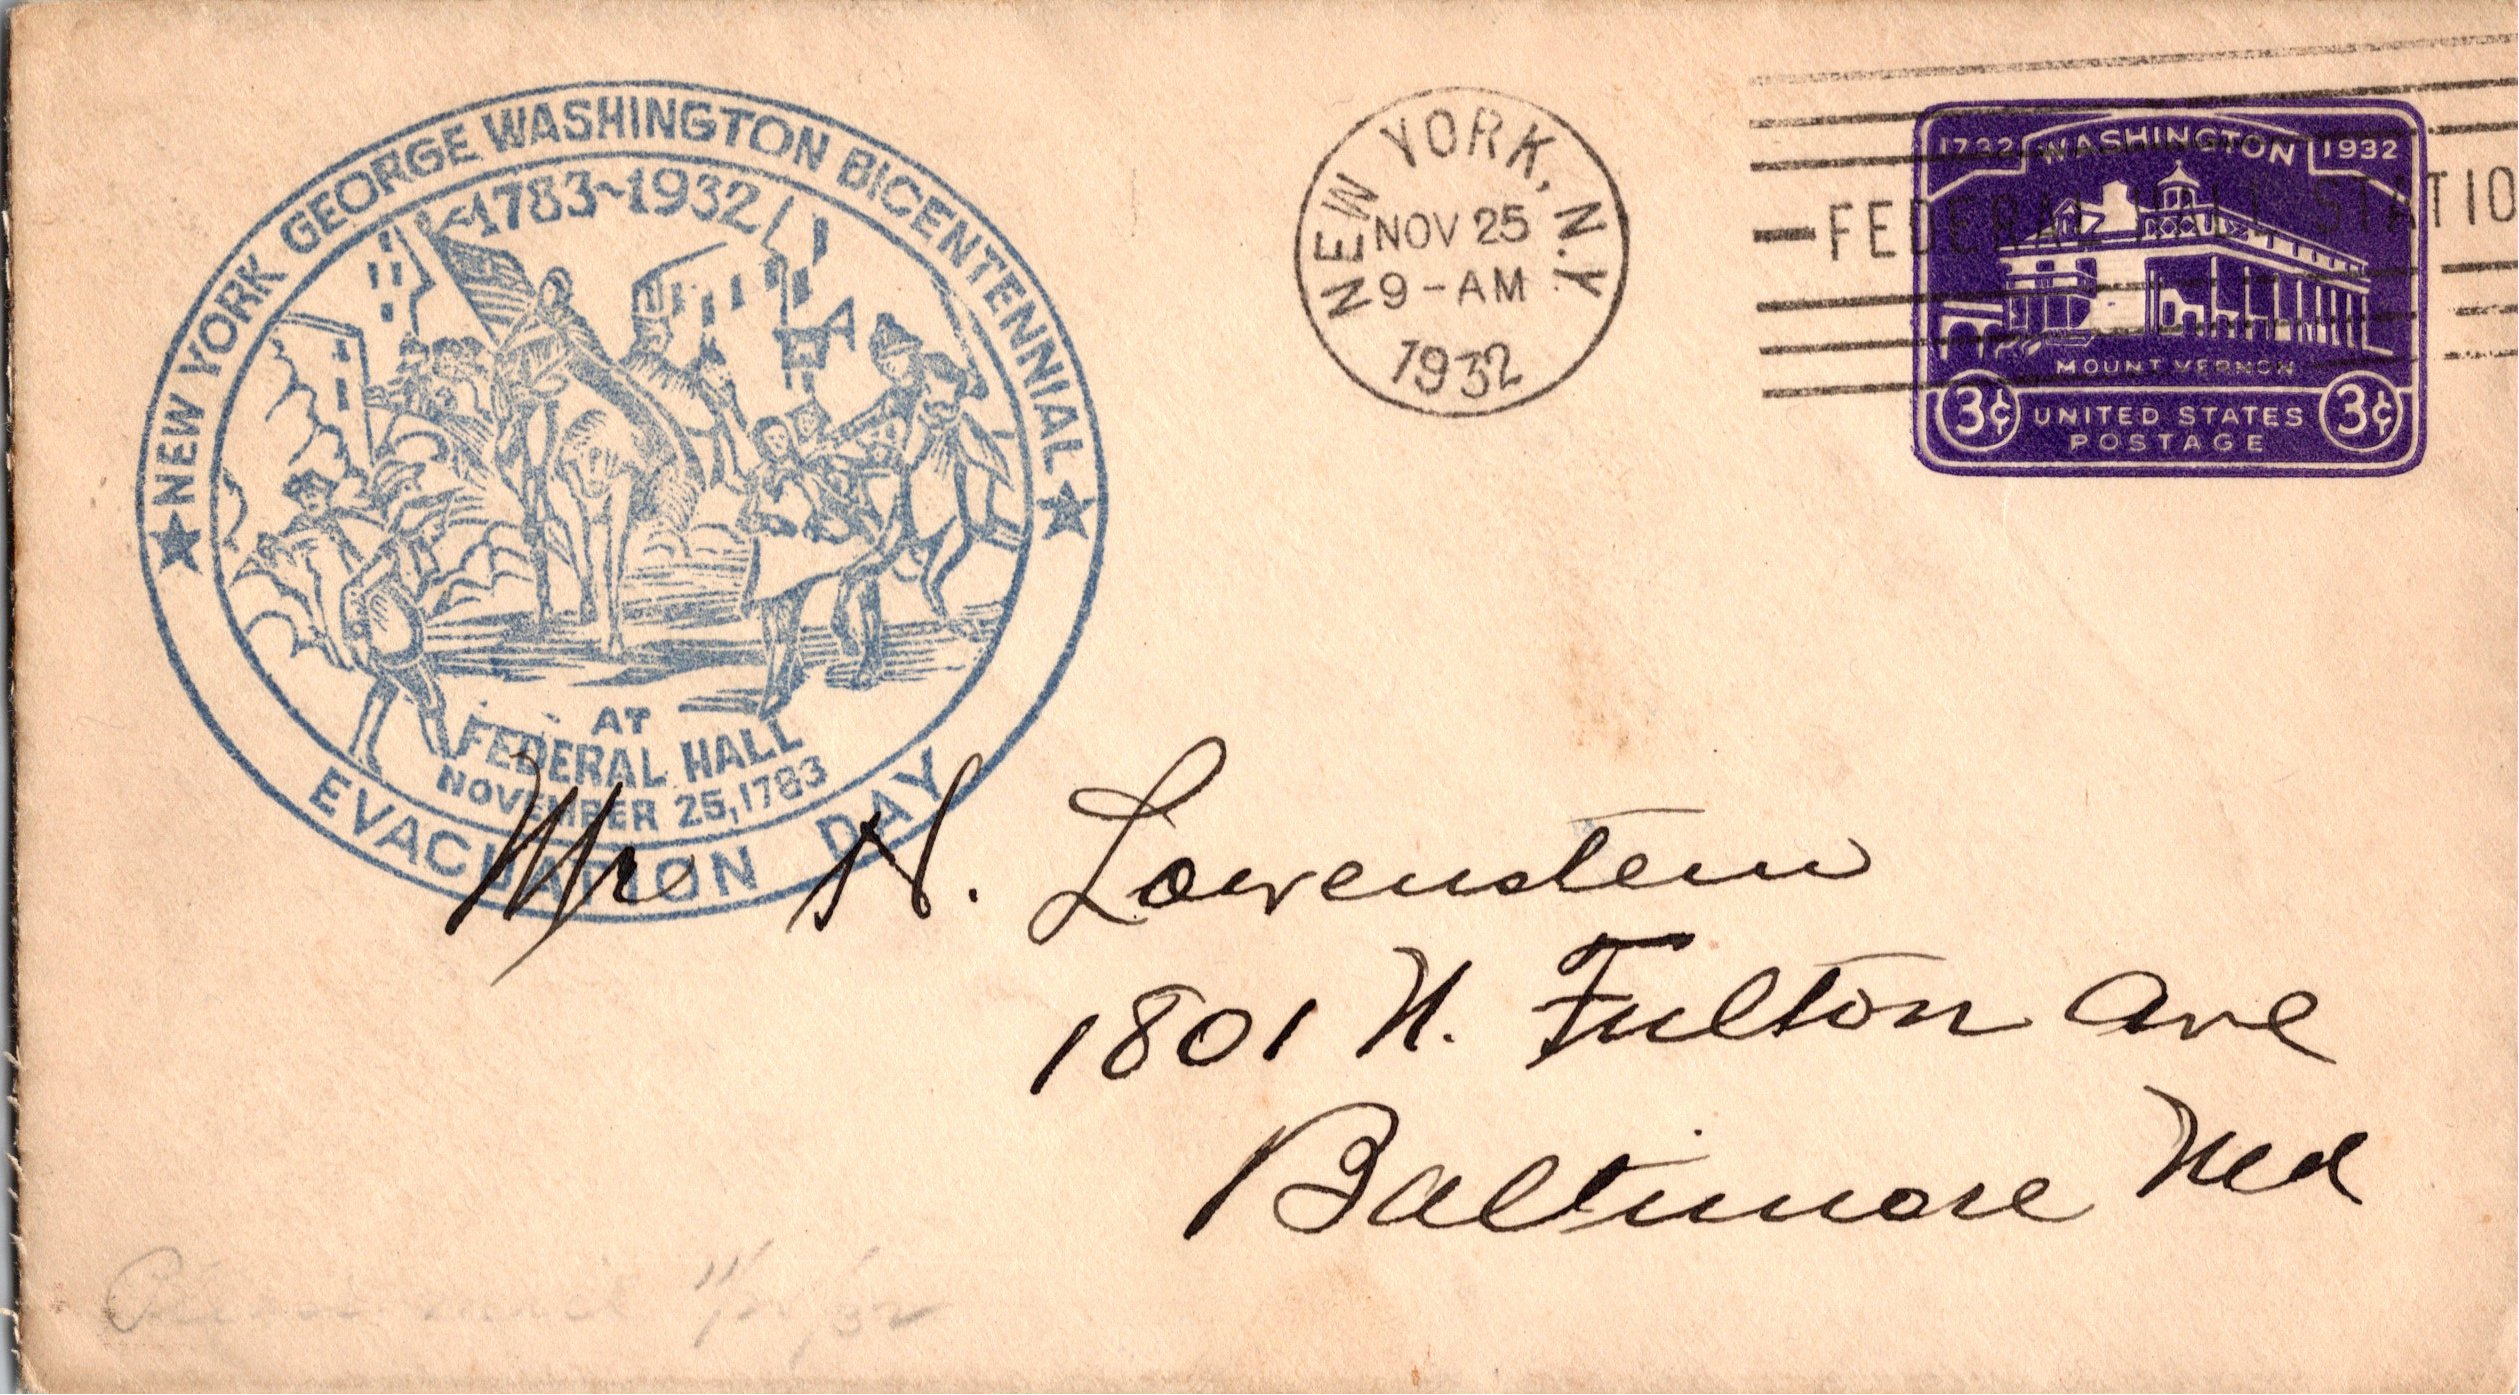 NEW YORK GEORGE WASHINGTON BICENTENNIAL
1783~1932
AT
FEDERAL HALL
NOVEMBER 25, 1783
EVACUATION DAY
NEW YORK, N.Y.
NOV 25
9-AM
1932
FEDERAL HALL STATIO
1732 WASHINGTON 1932
MOUNT VERNON
3¢ UNITED STATES 3¢
POSTAGE
Mr H. Lowenstein
1801 N. Fulton Ave
Baltimore Md
Please mail 11/25/32